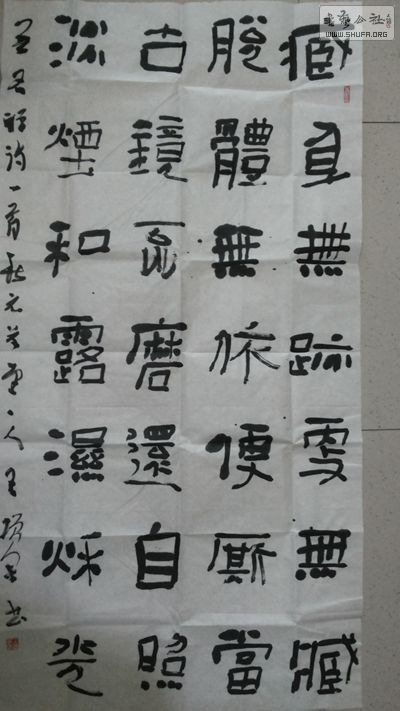 書藝公社
WWW.SHUFA.ORG
臧身無跡更無臧
脫體無依便廝當
古鏡不磨還自照
淡煙和露濕秋光
禪詩一首
書